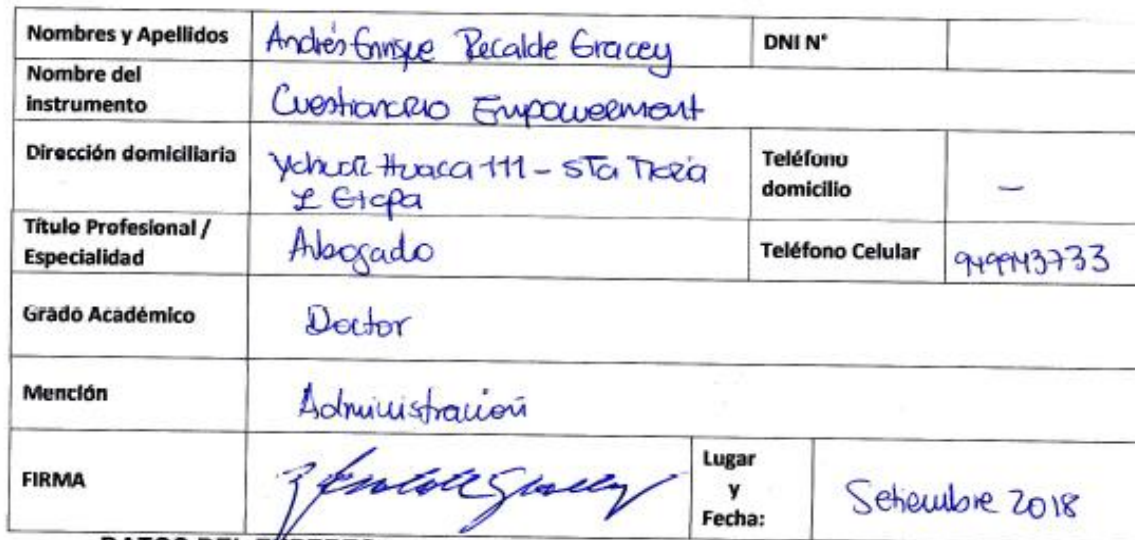 Nombres y Apellidos Andrés Enrique Recalde Gracey DNI N°
Nombre del
instrumento Cuestionario Empowerment
Dirección domiciliaria 111 - Sta Teléfono
I Etapa domicilio —
Título Profesional /
Especialidad Abogado Teléfono Celular 949943733
Grado Académico Doctor
Mención Administración
FIRMA Lugar
y
Fecha: Setiembre 2018